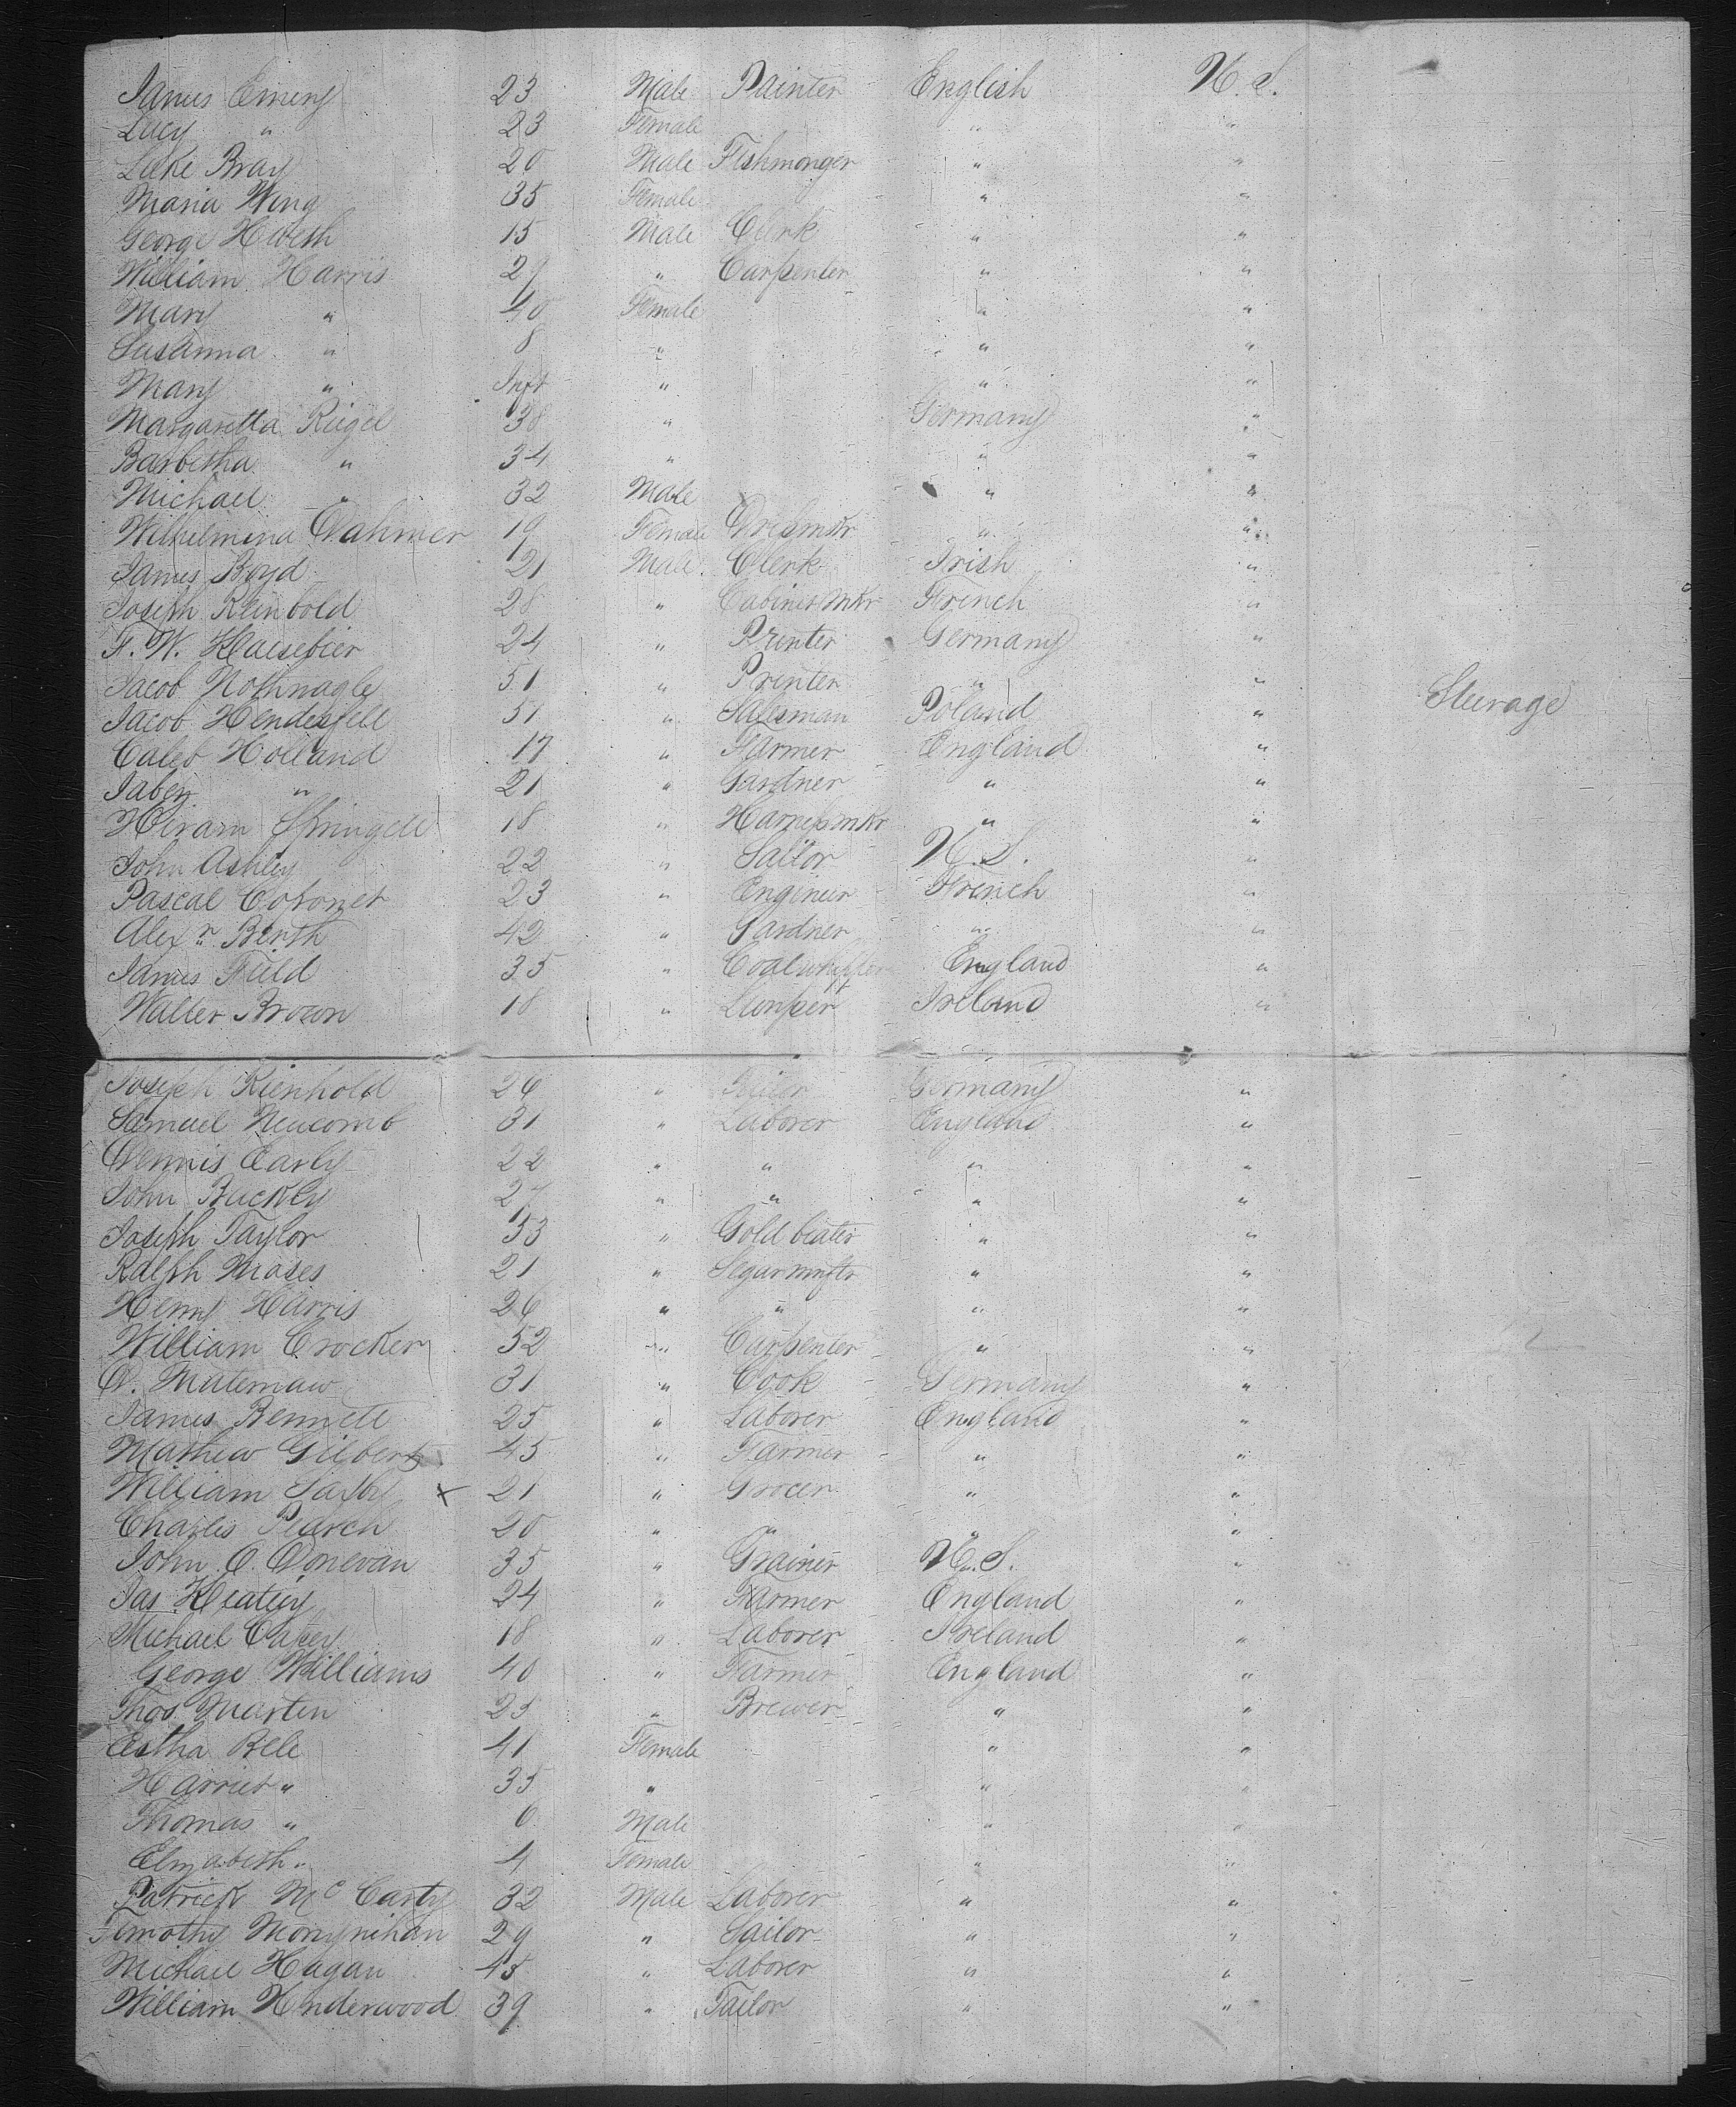 James Emery 23 Male Painter English U.S.
Lucy " 23 Female " "
Luke Bray 20 Male Fishmonger " "
Maria Wing 35 Female " "
George 15 Male Clerk " "
William Harris 27 " Carpenter " "
Mary " 40 Female " "
Susanna " 8 " " "
Mary " Inft " " "
Margaretta Riegel 38 " Germany "
Barbetha " 34 " " "
Michael " 32 Male " "
Wilhelmena Dahmer 19 Female Dressmkr " "
James Boyd 21 Male Clerk Irish "
Joseph Reinbold 28 " Cabinet mkr French "
F. W. Haesebier 24 " Printer Germany "
Jacob Nothnagle 51 " Printer " "
Jacob Hendesfell 51 " Salesman Poland " Steerage
Caleb Holland 17 " Farmer England "
Jabez " 21 " Gardner " "
Hiram Springell 18 " Harness mkr " "
John Ashley 22 " Sailor U.S. "
Pascal Coronet 23 " Engineer French "
Alexr Berth 42 " Gardner " "
James Field 35 " Coalwhipper England "
Walter Brown 18 " Lumper Ireland "
Joseph Rienhold 26 " Germany "
Samuel Newcomb 31 " Laborer England "
Dennis Early 22 " " " "
John Buckley 27 " " " "
Joseph Taylor 53 " Gold beater " "
Ralph Moses 21 " Segar mnftr " "
Henry Harris 26 " " " "
William Crocker 52 " Carpenter " "
D. Mutemaw 31 " Cook Germany "
James Bennett 25 " Laborer England "
Mathew Gilbert 45 " Farmer " "
William Saxby x 21 " Grocer " "
Charles Pearch 20 " " " "
John O. Donevan 35 " Grainer U.S. "
Jas. Heatley 24 " Farmer England "
Michael 18 " Laborer Ireland "
George Williams 40 " Farmer England "
Thos. Marten 25 " Brewer " "
Estha Bele 41 Female " "
Harriet " 35 " " "
Thomas " 6 Male " "
Elizabeth " 4 Female " "
Patrick McCarty 32 Male Laborer " "
Timothy Monynihan 29 " Sailor " "
Michael Hagan 45 " Laborer " "
William Underwood 39 " Tailor " "